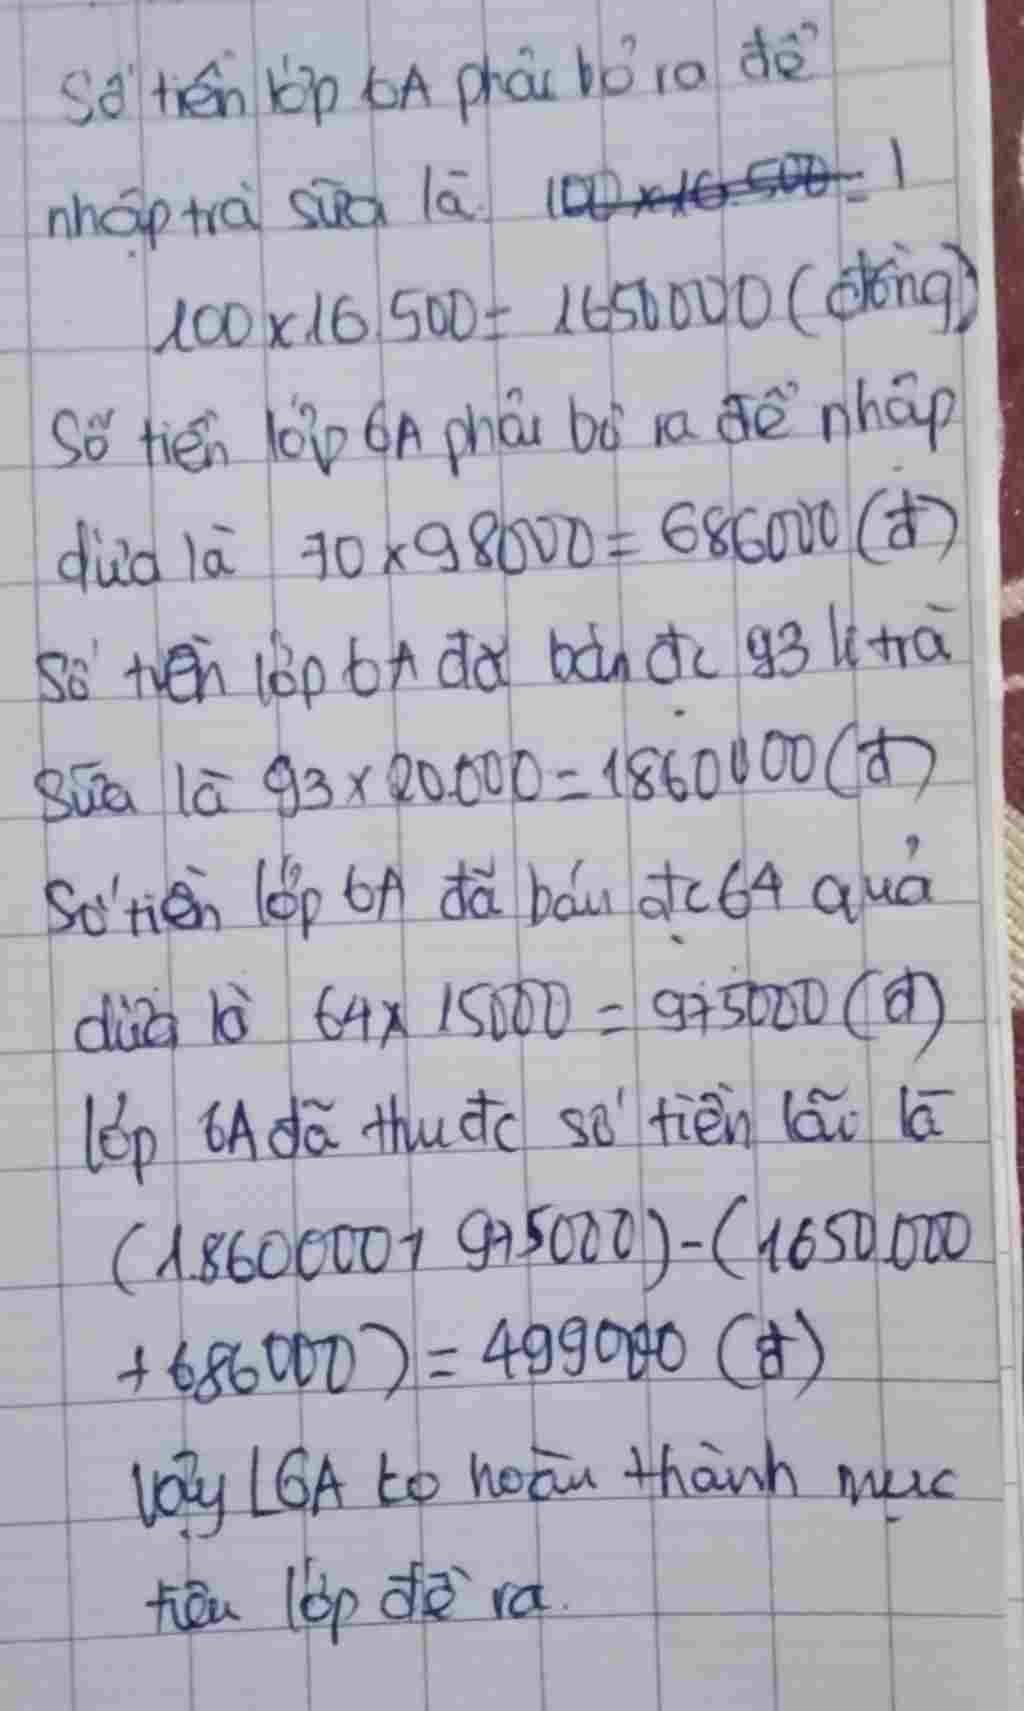 Số tiền lớp 6A phải bỏ ra để
nhập trà sữa là 100 x 16.500 = 1
100 x 16 500 = 1650000 (đồng)
Số tiền lớp 6A phải bỏ ra để nhập
dừa là 70 x 98000 = 686000 (đ)
Số tiền lớp 6A đã bán đc 93 li trà
sữa là 93 x 20.000 = 1860000 (đ)
Số tiền lớp 6A đã bán đc 64 quả
dừa là 64 x 15000 = 975000 (đ)
lớp 6A đã thu đc số tiền lãi là
(1.860000 + 975000) - (1650.000
+ 686000) = 499000 (đ)
Vậy L6A ko hoàn thành mục
tiêu lớp đề ra.